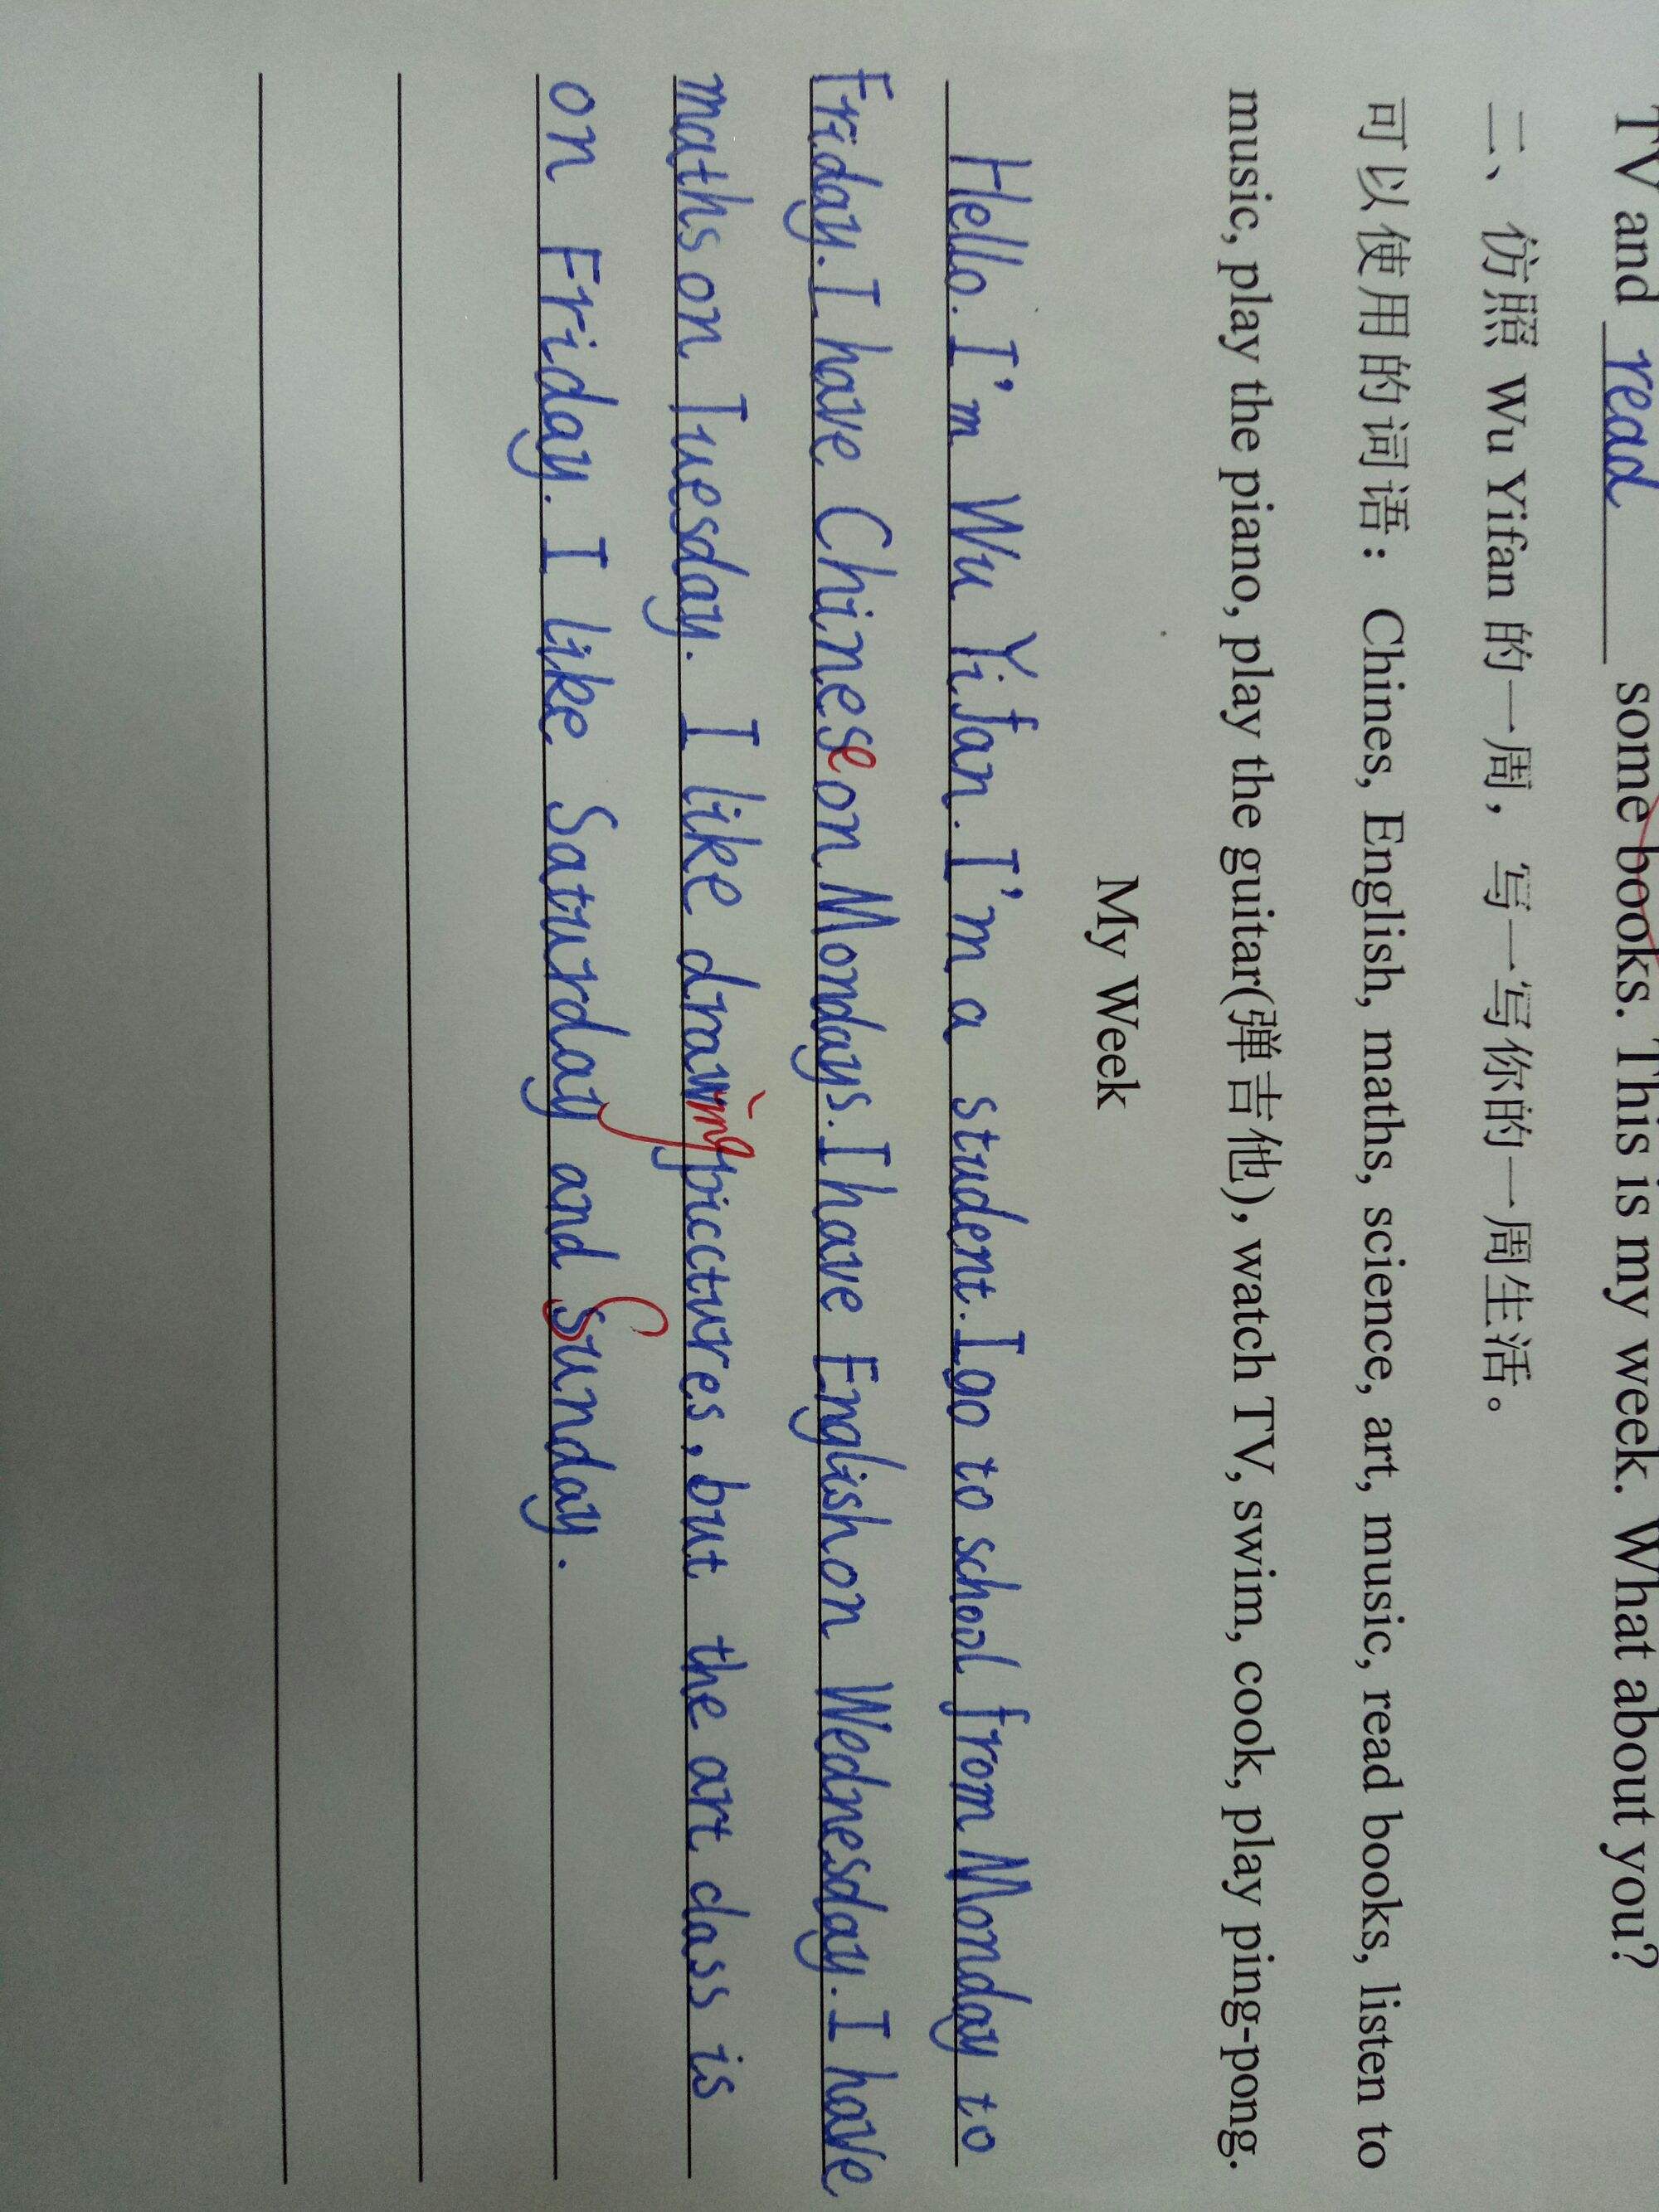 TV and read some books. This is my week. What about you?
二、仿照 Wu Yifan 的一周，写一写你的一周生活。
可以使用的词语：Chines, English, maths, science, art, music, read books, listen to
music, play the piano, play the guitar(弹吉他), watch TV, swim, cook, play ping-pong.
My Week
Hello. I'm Wu Yifan. I'm a student. I go to school from Monday to
Friday. I have Chinese on Mondays. I have English on Wednesday. I have
maths on Tuesday. I like drawing picctures, but the art class is
on Friday. I like Saturday and Sunday.